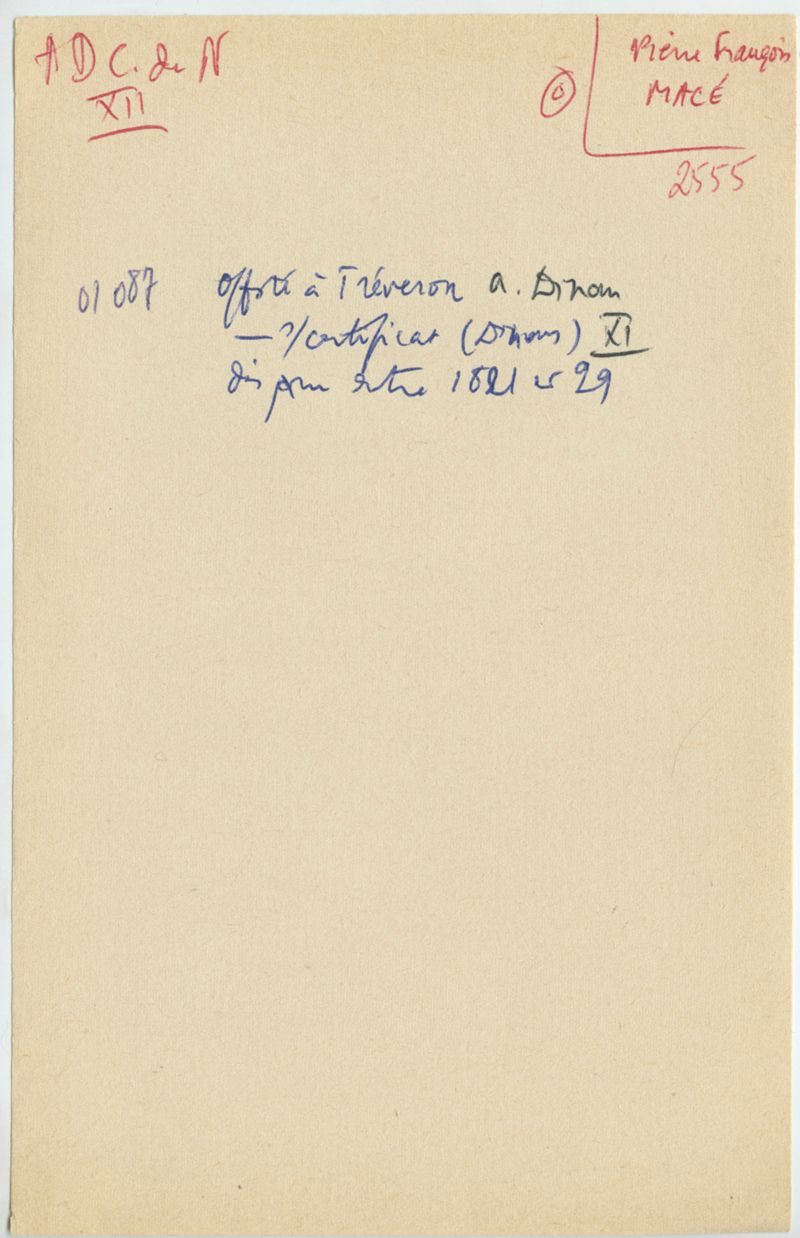 A D C. du N
XII
Pierre François
MACÉ
2555
01 087 à Tréveron a. Dinan
— ?/certificat (Dinan) XI
entre 1821 et 29